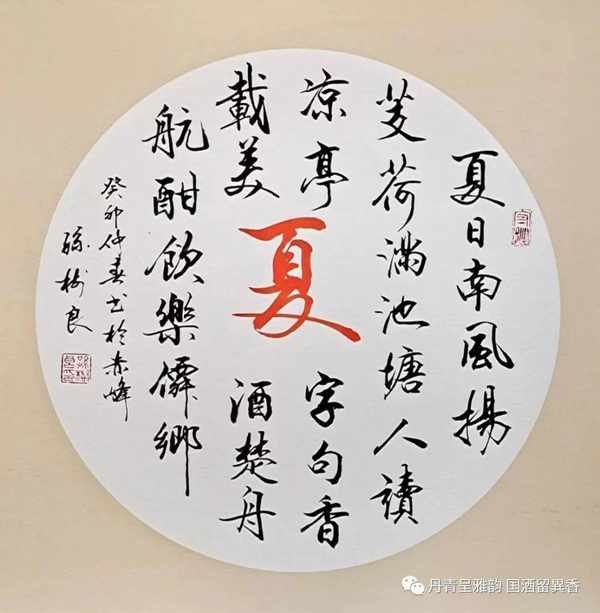 夏日南風揚
芰荷滿池塘人讀
凉亭字句香
載美酒楚舟
航酣飲樂僊鄉
夏
癸卯仲春书於赤峰
孫樹良
丹青呈雅韵 国酒留異香